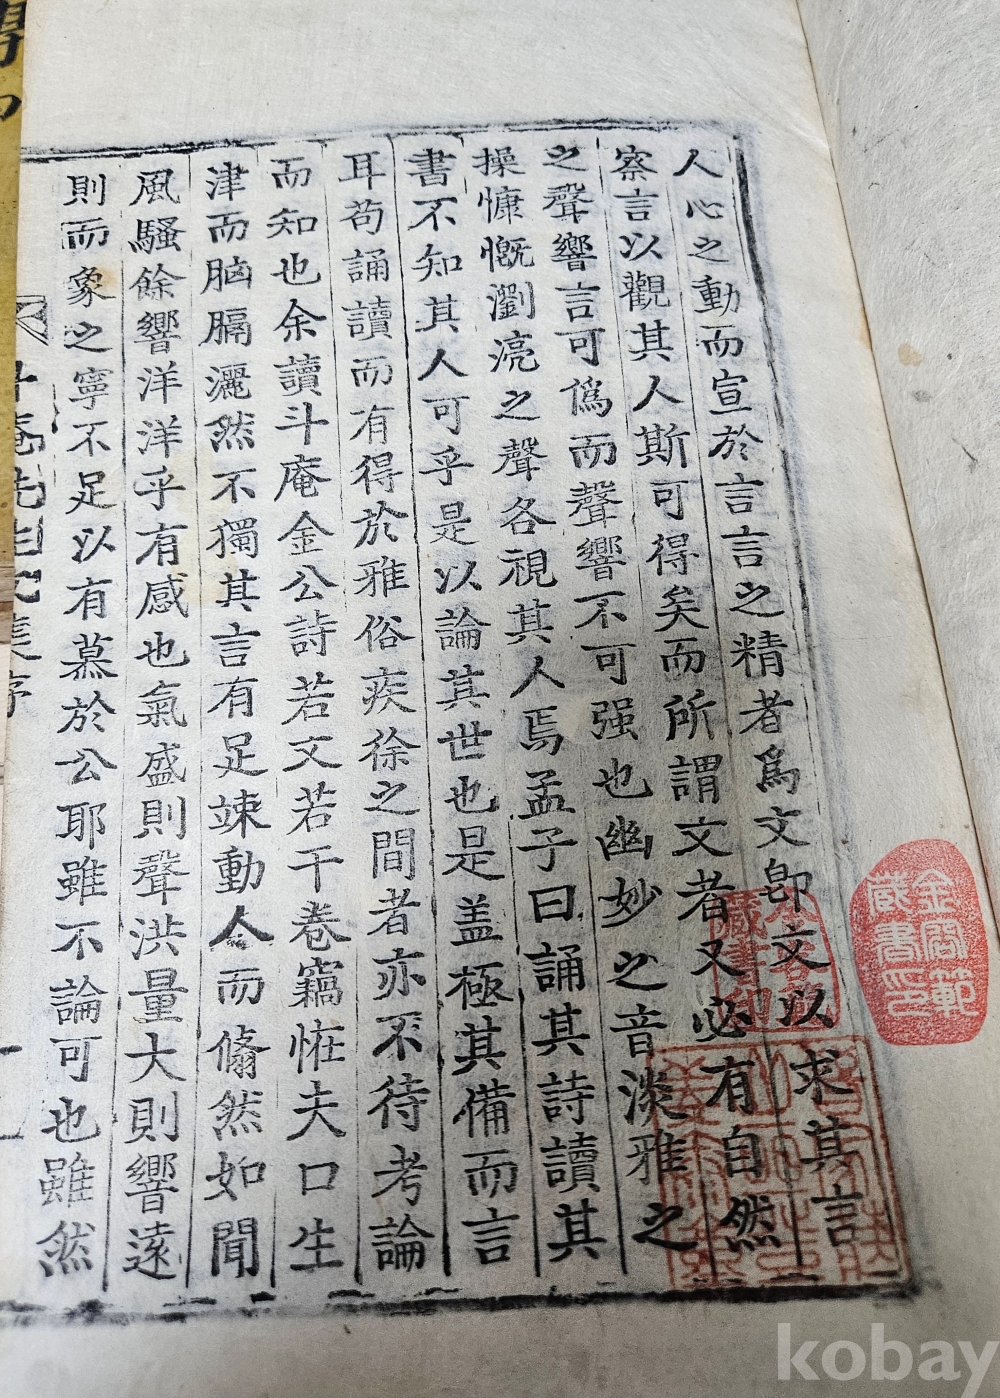 人心之動而宣於言言之精者爲文卽文以求其言
察言以觀其人斯可得矣而所謂文者又必有自然
之聲響言可僞而聲響不可强也幽妙之音淡雅之
操慷慨瀏亮之聲各視其人焉孟子曰誦其詩讀其
書不知其人可乎是以論其世也是盖極其備而言
耳苟誦讀而有得於雅俗疾徐之間者亦不待考論
而知也余讀斗庵金公詩若文若干卷竊恠夫口生
津而腦膈灑然不獨其言有足竦動人而翛然如聞
風騷餘響洋洋乎有感也氣盛則聲洪量大則響遠
則而象之寧不足以有慕於公耶雖不論可也雖然
斗庵先生文集序
藏書印
kobay